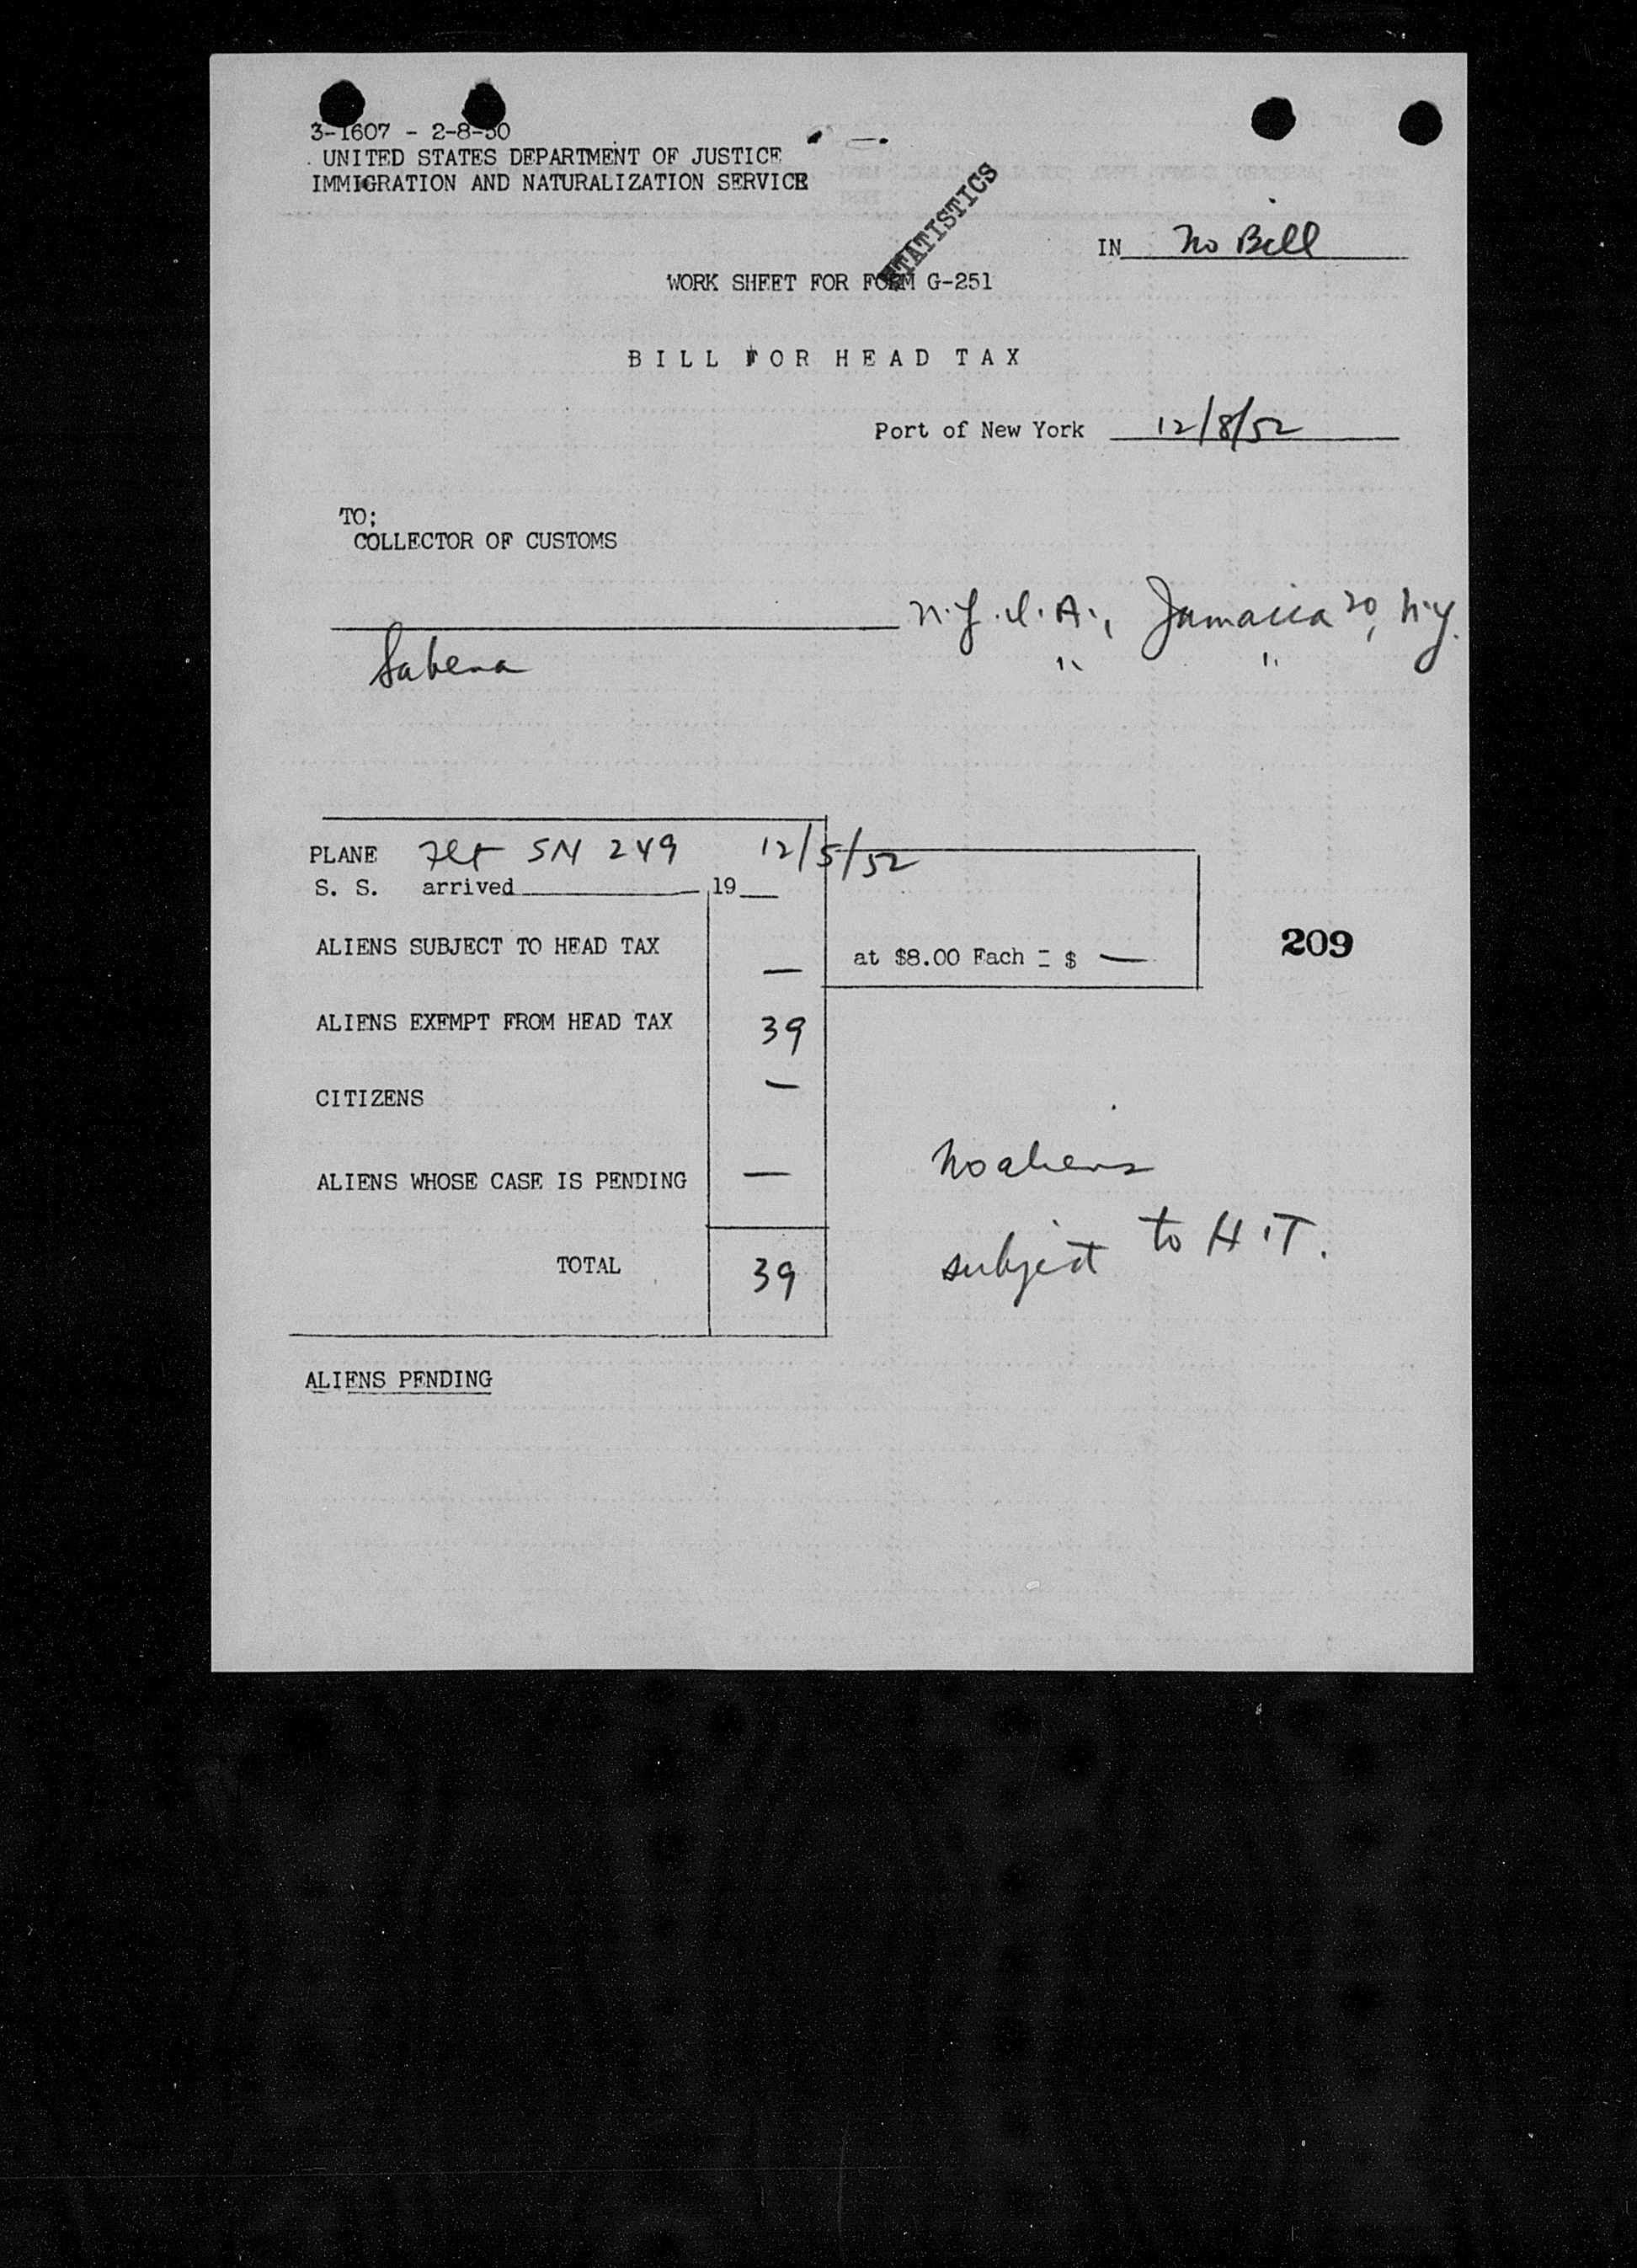 3-1607 - 2-8-50
UNITED STATES DEPARTMENT OF JUSTICE
IMMIGRATION AND NATURALIZATION SERVICE
STATISTICS
IN No Bill
WORK SHEET FOR FORM G-251
BILL FOR HEAD TAX
Port of New York 12/8/52
TO;
COLLECTOR OF CUSTOMS
N.Y.I.A., Jamaica 20, N.Y.
Sabena " "
PLANE Flt SN 249 12/5/52
S. S. arrived 19
ALIENS SUBJECT TO HEAD TAX — at $8.00 Each = $ —
209
ALIENS EXEMPT FROM HEAD TAX 39
CITIZENS —
No aliens
ALIENS WHOSE CASE IS PENDING —
subject to H.T.
TOTAL 39
ALIENS PENDING